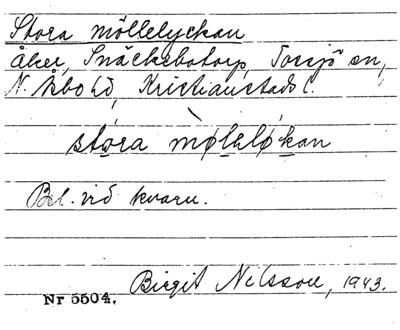 Stora möllelyckan
åker, Snäckebotorp, Torsjö sn,
N. Åbo hd, Kristianstads l.
stora møleløkan
Bel. vid kvarn.
Birgit Nilsson, 1943.
Nr 5504.